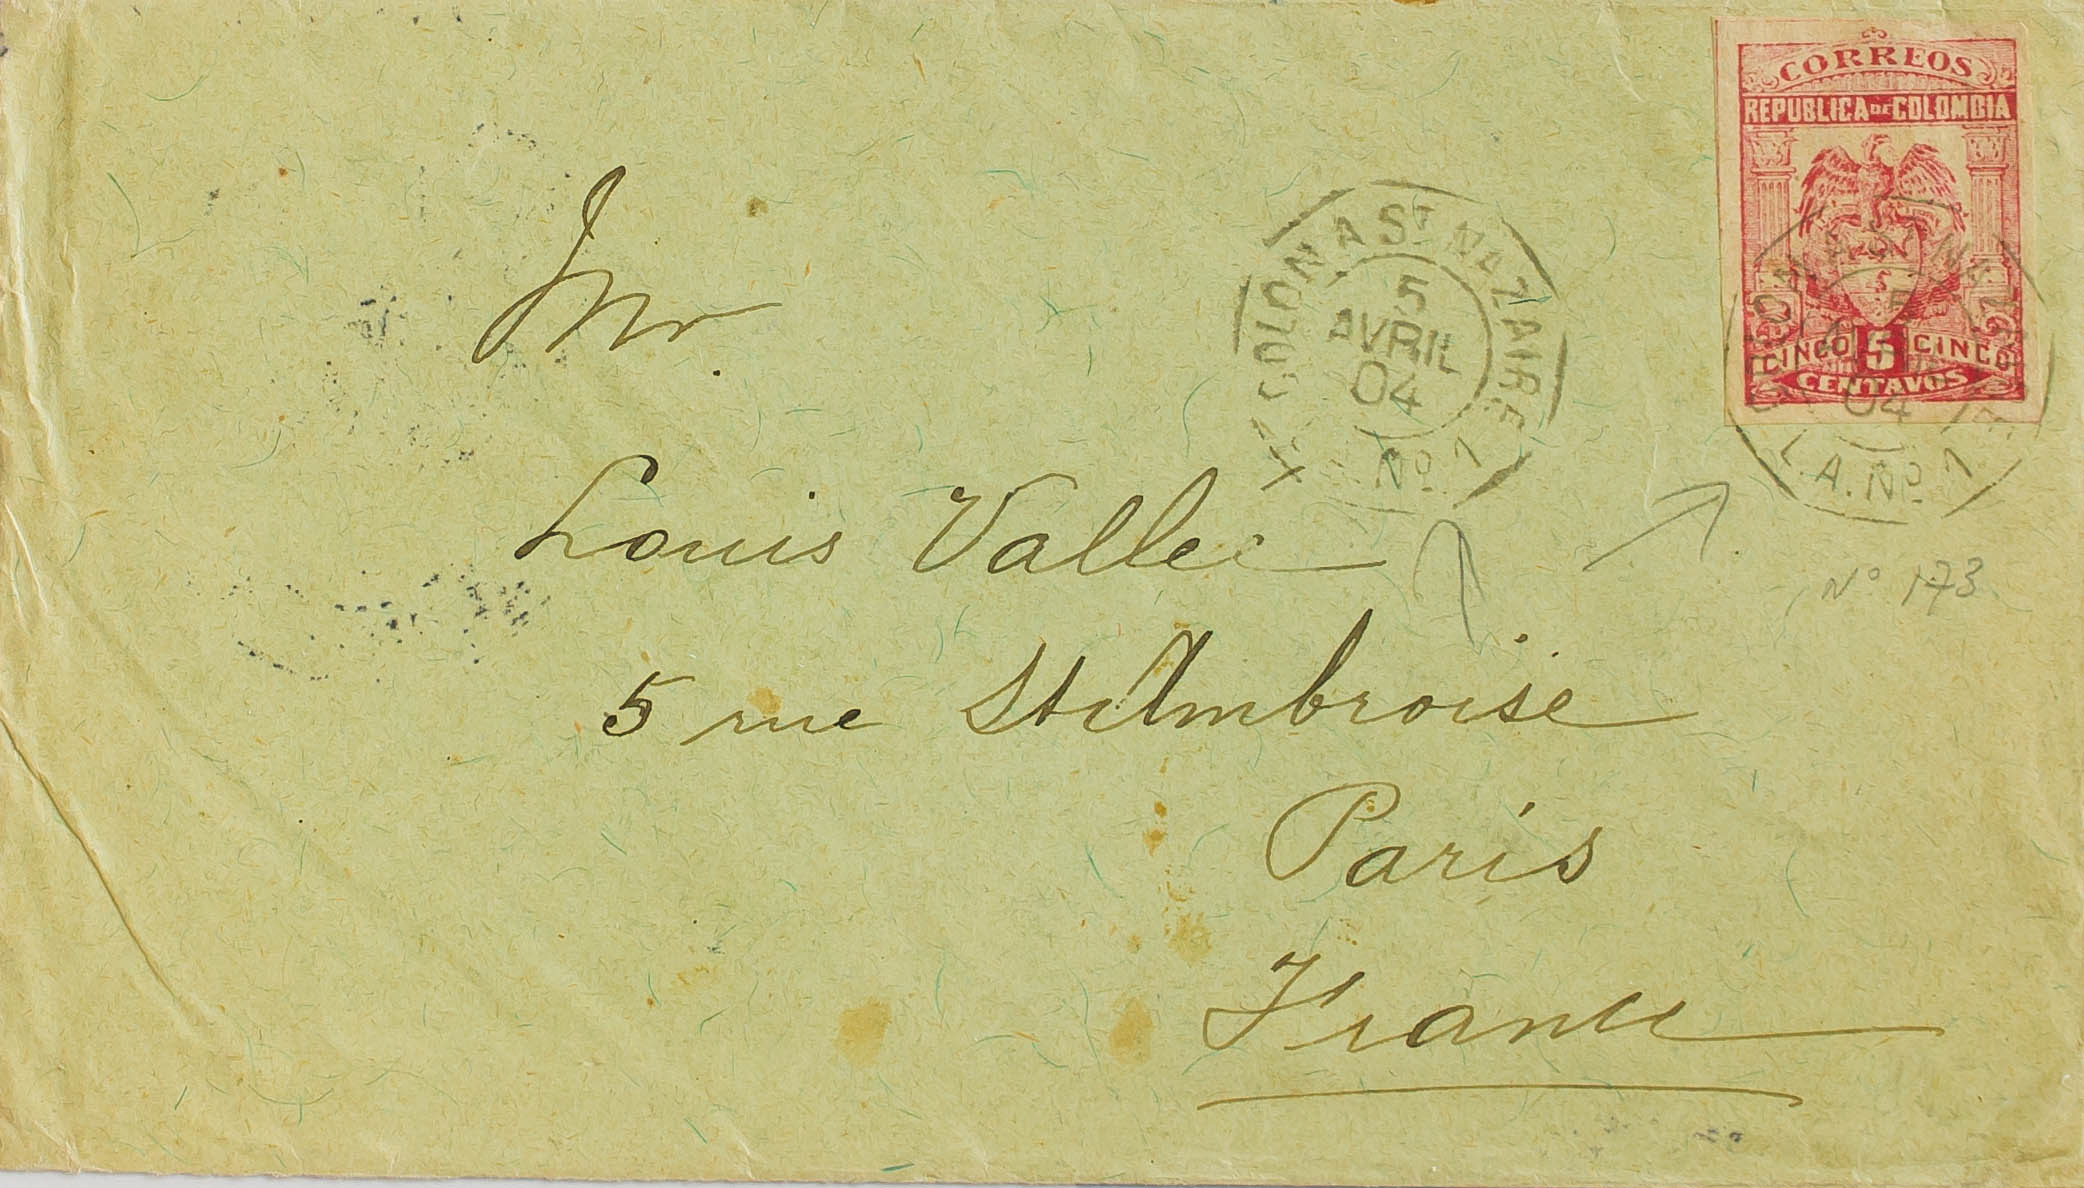 CORREOS
REPUBLICA DE COLOMBIA
5
CINCO 5 CINCO
CENTAVOS
COLON A ST NAZAIRE
5
AVRIL
04
Nº 1
COLON A ST NAZAIRE
5
AVRIL
04
L.A. Nº 1
Nº 173
Mr.
Louis Vallee
5 rue St Ambroise
Paris
France